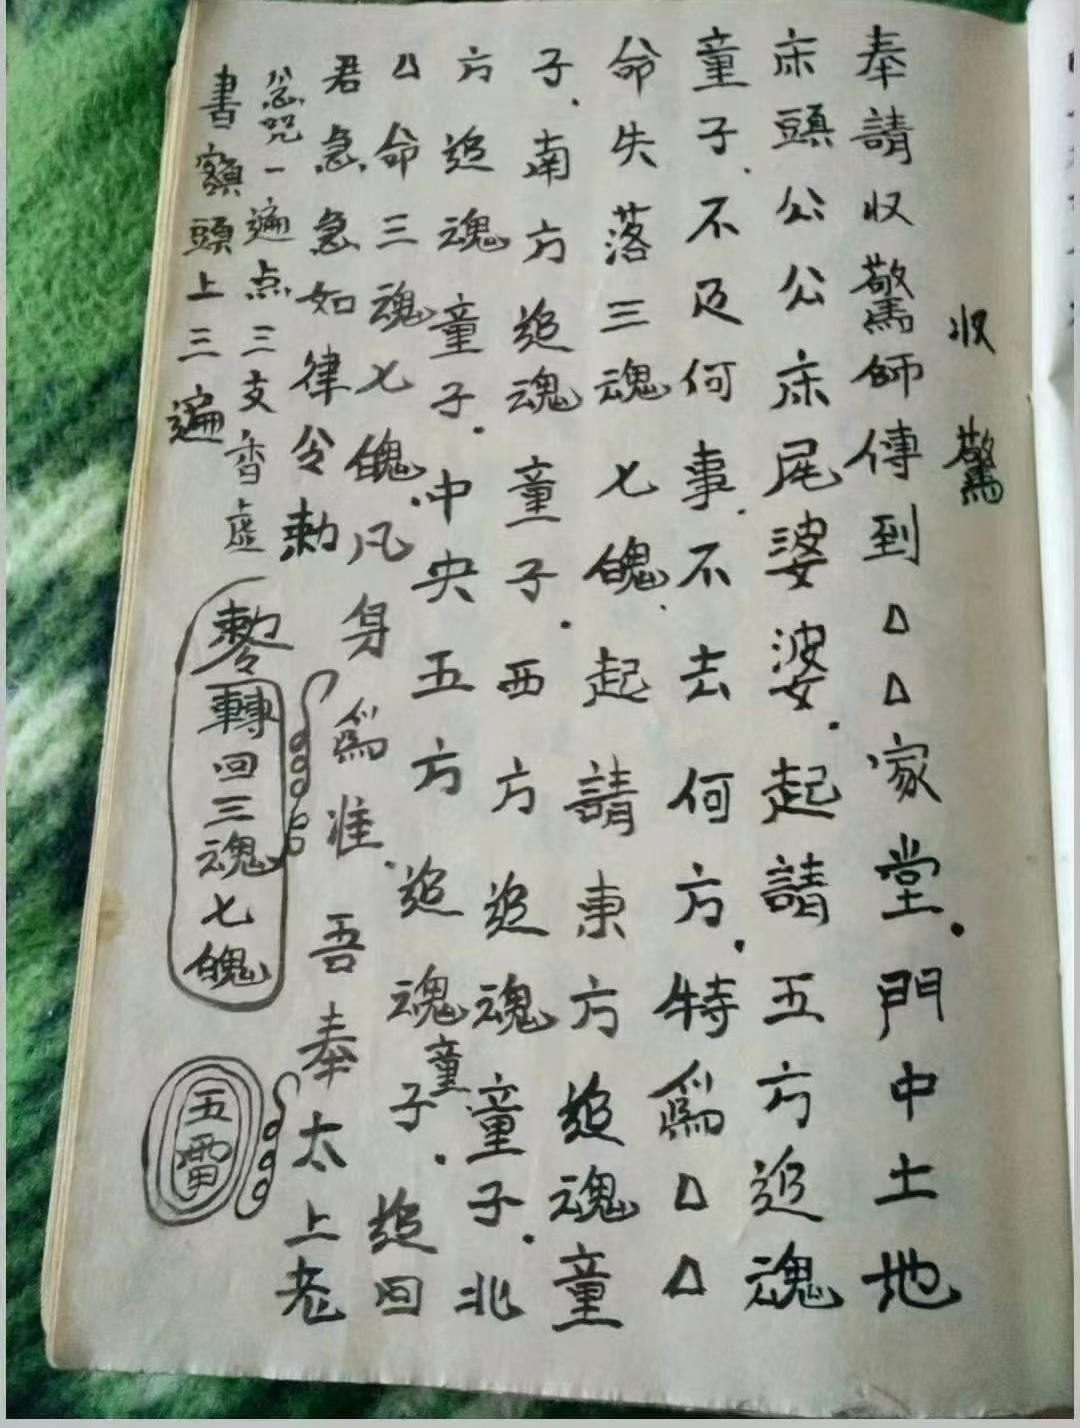 收驚
奉請收驚師傅到△△家堂.門中土地
床頭公公床尾婆婆.起請五方追魂
童子.不及何事.不去何方.特為△△
命失落三魂七魄.起請東方追魂童
子.南方追魂童子.西方追魂童子.北
方追魂童子.中央五方追魂童子.追回
△命三魂七魄.凡身為准.吾奉太上老
君急急如律令勅
念咒一遍点三支香虚
書額頭上三遍
勅令轉回三魂七魄
五雷